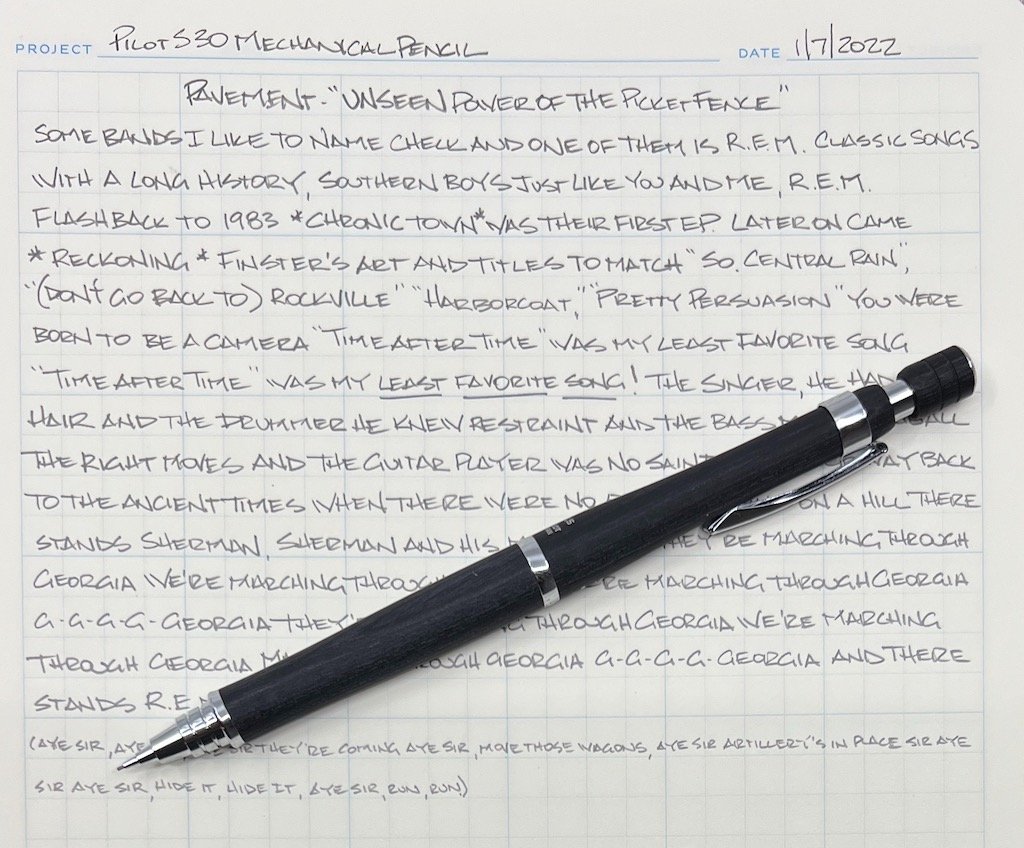 PROJECT PILOT S30 MECHANICAL PENCIL DATE 1/7/2022
PAVEMENT - "UNSEEN POWER OF THE PICKET FENCE"
SOME BANDS I LIKE TO NAME CHECK AND ONE OF THEM IS R.E.M. CLASSIC SONGS
WITH A LONG HISTORY, SOUTHERN BOYS JUST LIKE YOU AND ME, R.E.M.
FLASHBACK TO 1983 *CHRONIC TOWN* WAS THEIR FIRST EP. LATER ON CAME
*RECKONING* FINSTER'S ART AND TITLES TO MATCH "SO. CENTRAL RAIN",
"(DON'T GO BACK TO) ROCKVILLE" "HARBORCOAT," "PRETTY PERSUASION" YOU WERE
BORN TO BE A CAMERA "TIME AFTER TIME" WAS MY LEAST FAVORITE SONG
"TIME AFTER TIME" WAS MY LEAST FAVORITE SONG! THE SINGER, HE HAD
HAIR AND THE DRUMMER HE KNEW RESTRAINT AND THE BASS ALL
THE RIGHT MOVES AND THE GUITAR PLAYER WAS NO SAINT WAY BACK
TO THE ANCIENT TIMES WHEN THERE WERE NO ON A HILL THERE
STANDS SHERMAN, SHERMAN AND HIS THEY'RE MARCHING THROUGH
GEORGIA WE'RE MARCHING THROUGH MARCHING THROUGH GEORGIA
G-G-G-G-GEORGIA THEY'RE THROUGH GEORGIA WE'RE MARCHING
THROUGH GEORGIA THROUGH GEORGIA G-G-G-G-GEORGIA AND THERE
STANDS R.E.M.
(AYE SIR, AYE SIR THEY'RE COMING AYE SIR, MOVE THOSE WAGONS, AYE SIR ARTILLERY'S IN PLACE SIR AYE
SIR AYE SIR, HIDE IT, HIDE IT, AYE SIR, RUN, RUN)